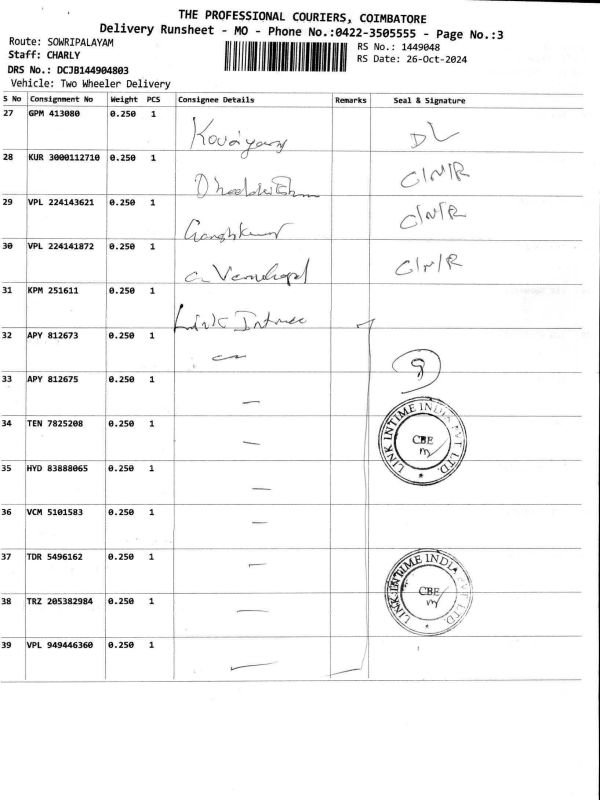 THE PROFESSIONAL COURIERS, COIMBATORE
Delivery Runsheet - MO - Phone No.:0422-3505555 - Page No.:3
Route: SOWRIPALAYAM
Staff: CHARLY
DRS No.: DCJB144904803
Vehicle: Two Wheeler Delivery
RS No.: 1449048
RS Date: 26-Oct-2024
S No Consignment No Weight PCS Consignee Details Remarks Seal & Signature
27 GPM 413080 0.250 1 DL
28 KUR 3000112710 0.250 1 C/N/R
29 VPL 224143621 0.250 1 C/N/R
30 VPL 224141872 0.250 1 C/N/R
31 KPM 251611 0.250 1 Link Intime
32 APY 812673 0.250 1
33 APY 812675 0.250 1 —
34 TEN 7825208 0.250 1 —
LINK INTIME INDIA PVT LTD.
CBE
35 HYD 83888065 0.250 1 —
36 VCM 5101583 0.250 1 —
37 TDR 5496162 0.250 1 —
38 TRZ 205382984 0.250 1 —
LINK INTIME INDIA PVT LTD.
CBE
39 VPL 949446360 0.250 1 —